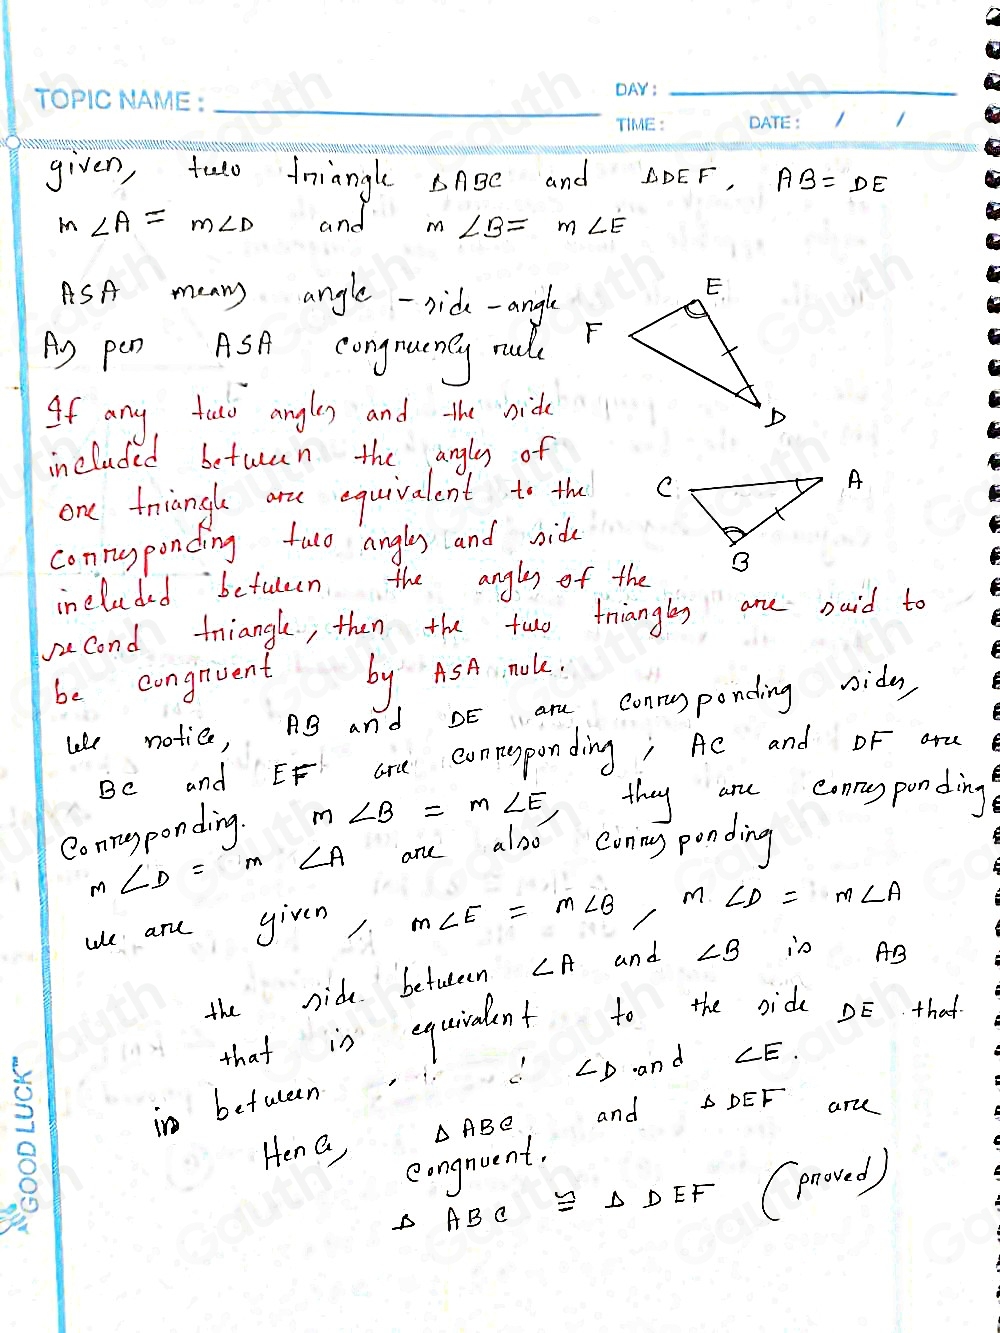 TOPIC NAME :
DAY :
TIME : DATE : / /
given, two triangle ΔABC and ΔDEF, AB = DE
m∠A = m∠D and m∠B = m∠E
ASA means angle - side - angle
As per ASA congruency rule
If any two angles and the side
included between the angles of
one triangle are equivalent to the
corresponding two angles and side
included between the angles of the
second triangle, then the two triangles are said to
be congruent by ASA rule.
E
F
D
C
A
B
We notice, AB and DE are corresponding sides,
BC and EF are corresponding; AC and DF are
corresponding. m∠B = m∠E, they are corresponding
m∠D = m∠A are also corresponding
We are given, m∠E = m∠B, m∠D = m∠A
the side between ∠A and ∠B is AB
that is equivalent to the side DE that
is between ∠D and ∠E.
Hence, ΔABC and ΔDEF are
congruent.
ΔABC ≅ ΔDEF (proved)
GOOD LUCK™
Gauth